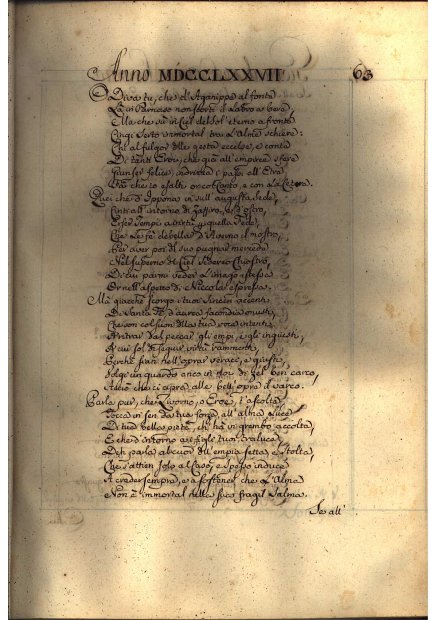 Anno MDCCLXXVII 63
O Diva tu, che d'Aganippe al fonte
La in Parnaso non
Ma che su in Ciel del Sol eterno a fronte
Cingi Serto immortal tra l'Alme schiere:
al fulgor delle gesta eccelse, e conte
Di tanti Eroi, che già all'empiree sfere
Giunser felici, indrizza i passi all'Erta
ch'io esalti or col Canto, e con la Cetera.
Quei che d'Ipponia in sull'augusta Sede,
intorno di Zaffiro, e d'ostro,
Erger Tempi a virtù quella Fede,
Che Le fe debellar d'Averno il mostro,
Per aver poi del suo pugnar mercede
Nel superno del Ciel Chiostro,
Di cui parmi veder L'imago istessa
Or nell'aspetto di Niccola espressa.
Mà giacchè scorgo i tuoi sinceri accenti
Di Santa Fè, d'aurea facondia onusti,
Che son col suon della tua voce intenti
A ritrar dal peccar gli empi, e gli ingiusti,
A cui sol di seguir virtù rammenti,
Perchè sian nell'oprar veraci, e giusti,
Volgi un guardo anco in noi di zel ben carco,
Acciò che ci apra alle bell'opre il varco.
Parla pur, che Livorno, o Eroe, t'ascolta
Tocca in sen da tua forza, all'alma Luce
Di tua bella pietà, ch'hà in grembo accolta,
E che d'intorno ai figli tuoi traluce
Deh parla, al cuor dell'empia setta, e stolta,
Che s'attien solo al Caso, e spesso induce
A creder sempre, e a sostener che L'Alma
Non è immortal nella sua fragil Salma.
Se all'